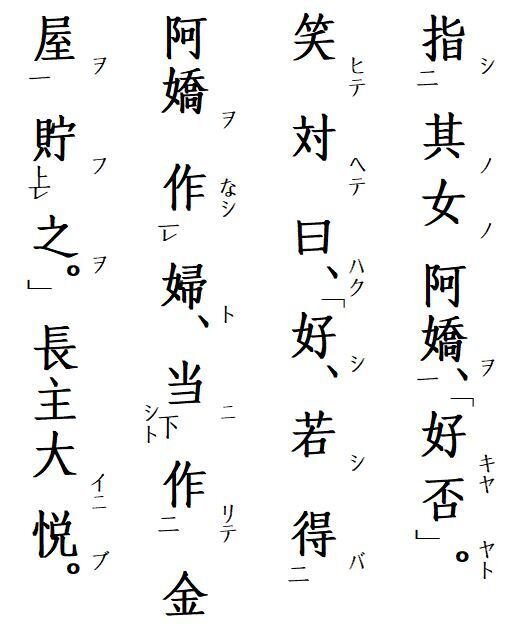 指シ二其ノ女ノ阿嬌ヲ一、「好キヤ否ヤト」。
笑ヒテ対ヘテ曰ハク、「好シ、若シ得バ二
阿嬌ヲ作なシ一レ婦ト、当ニ下シト作リテ二金
屋ヲ一貯フ上レ之ヲ。」長主大イニ悦ブ。